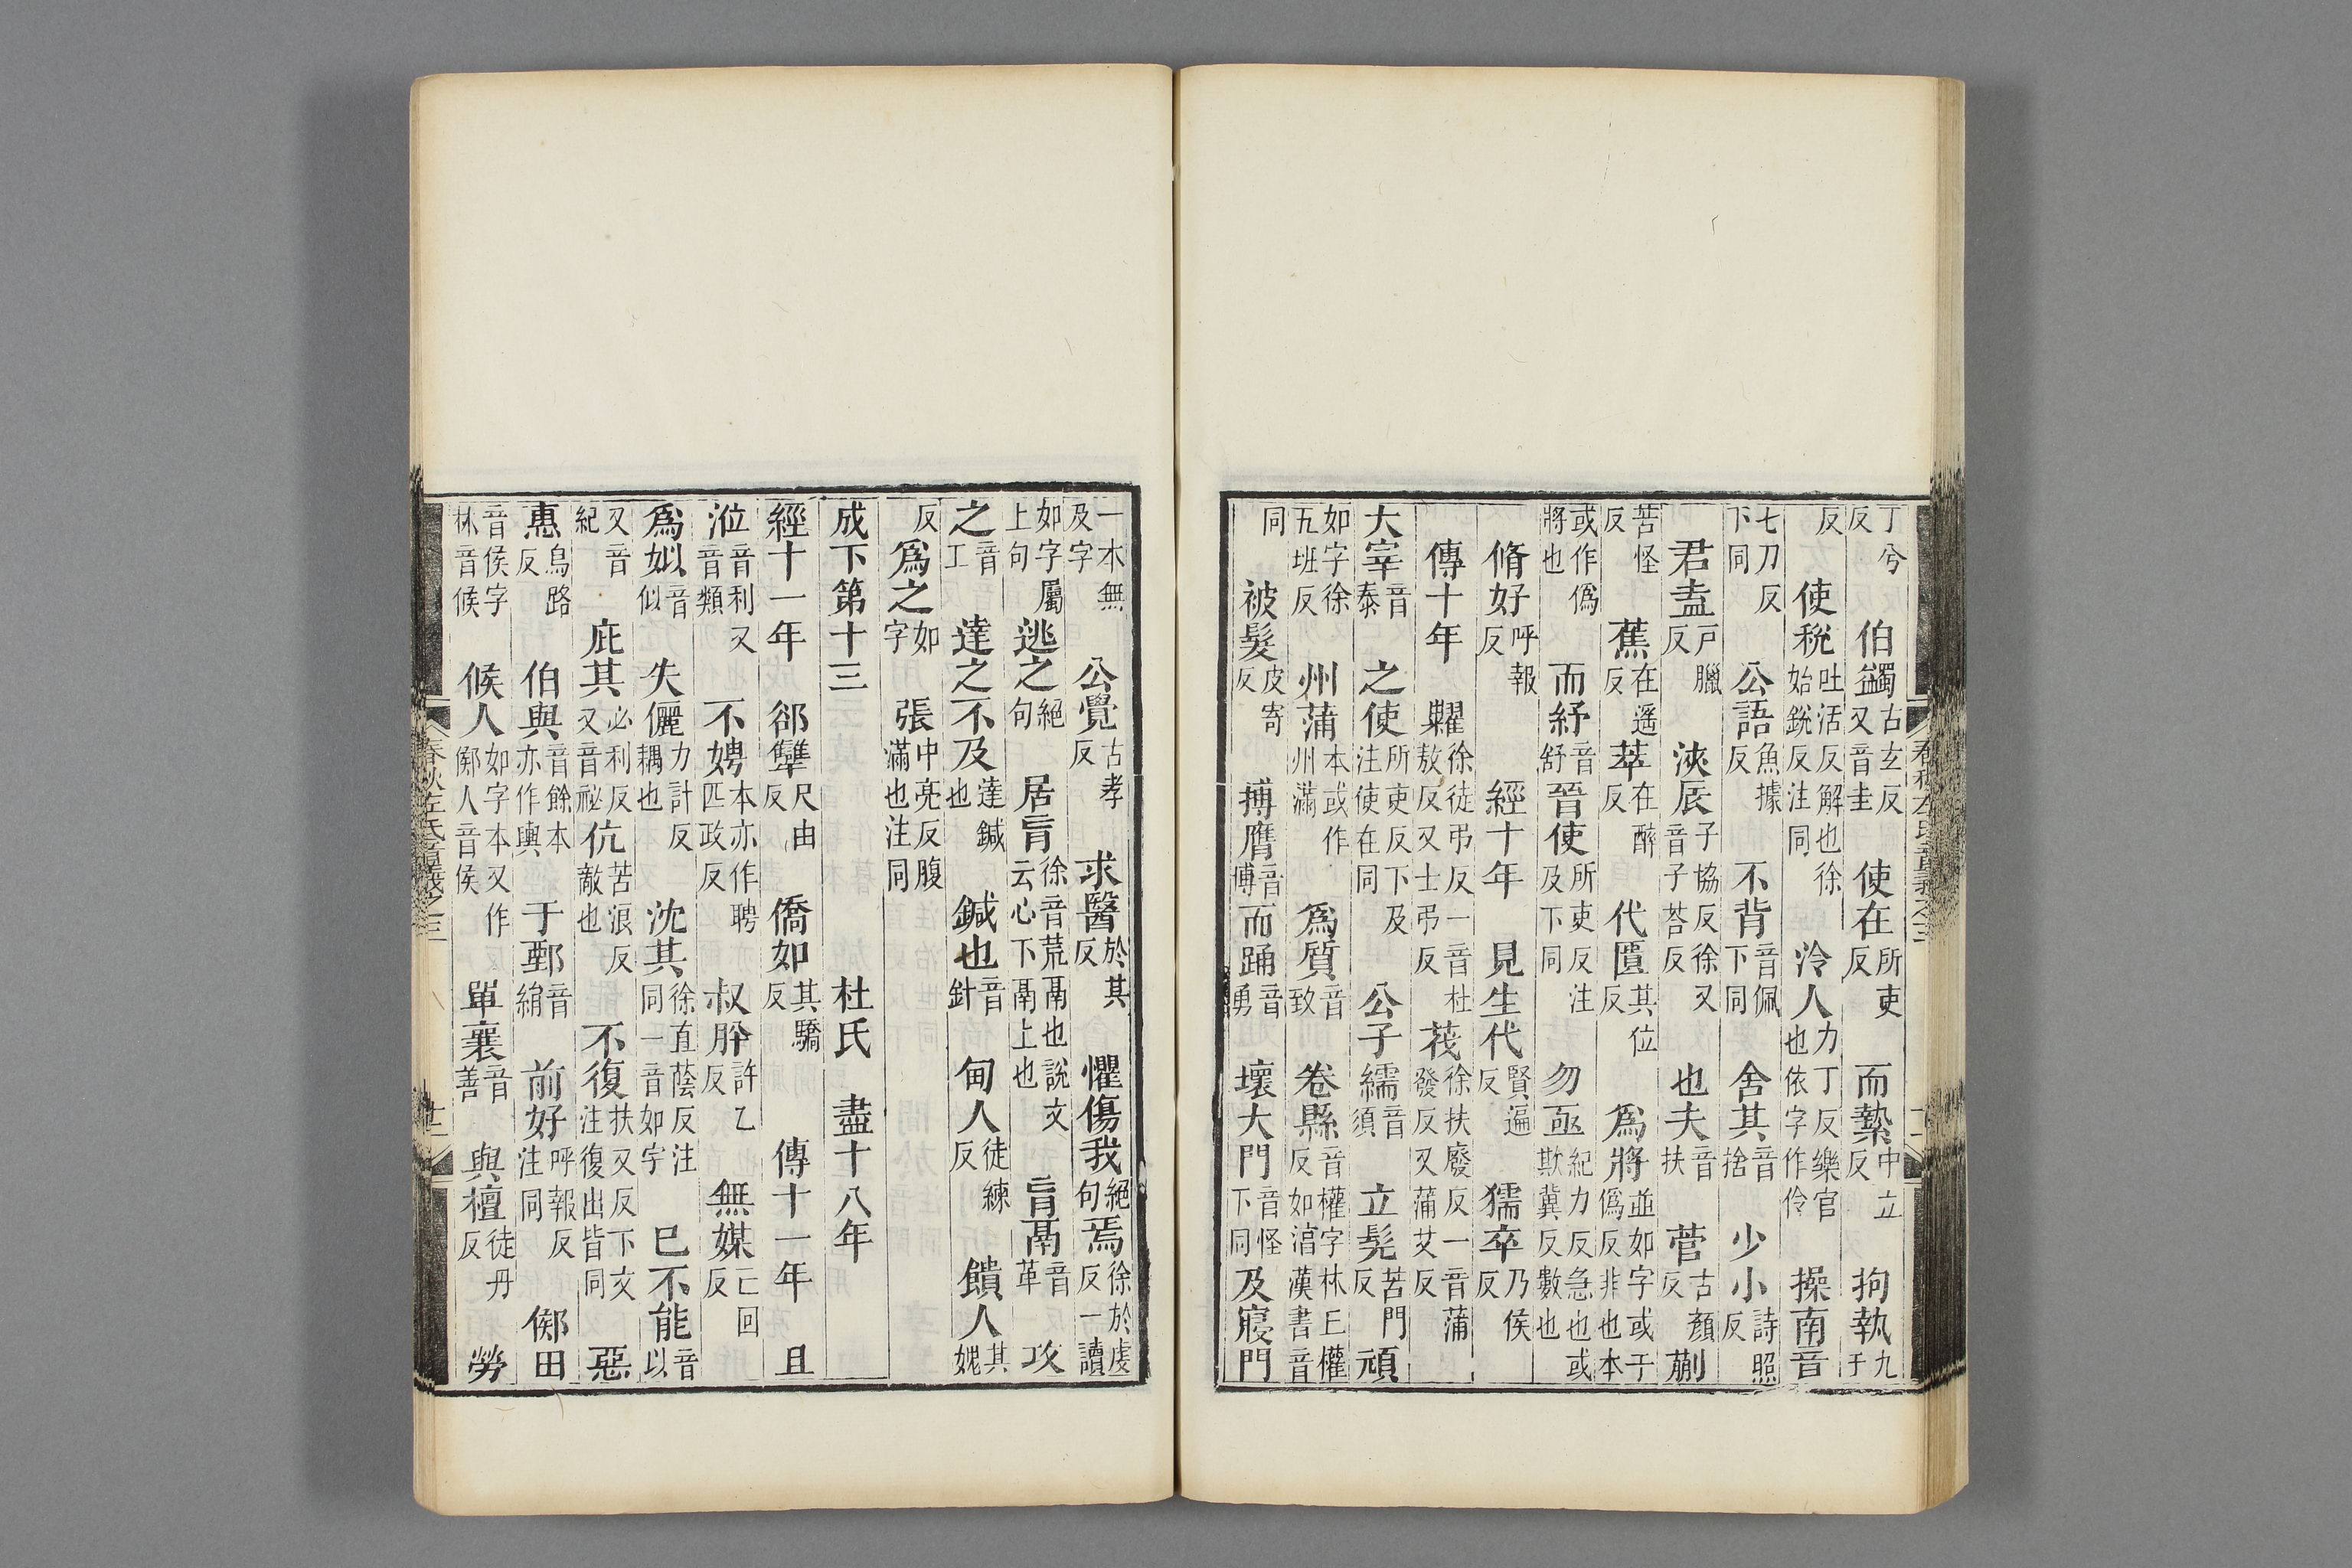 丁兮反 伯蠲古玄反又音圭 使在所吏反 而縶中立反 拘執九于
反 使稅吐活反解也徐始銳反注同 泠人力丁反樂官也依字作伶 操南音
七刀反下同 公語魚據反 不背音佩下同 舍其音捨 少小詩照反
君盍戶臘反 浹辰子協反徐又音子荅反 也夫音扶 菅古顏反 蒯
苦怪反 蕉在遥反 萃在醉反 代匱其位反 爲將並如字或于僞反非也本
或作僞將也 而紓音舒 晉使所吏反注及下同 勿亟紀力反急也或欺冀反數也
脩好呼報反 經十年 見生代賢遍反 獳卒乃侯反
傳十年 糶徐徒弔反一音杜敖反又士弔反 茷徐扶廢反一音蒲發反又蒲艾反
大宰音泰 之使所吏反下及注使在同 公子繻音須 立髠苦門反 頑
如字徐五班反 州蒲本或作州滿 爲質音致 卷縣音權字林丘權反如淳漢書音
同 被髮皮寄反 搏膺音博 而踊音勇 壞大門音怪下同 及寢門
一本無及字 公覺古孝反 求醫於其反 懼傷我絕句 焉徐於虔反一讀
如字屬上句 逃之絕句 居肓徐音荒鬲也說文云心下鬲上也 肓鬲音革 攻
之音工 達之不及達鍼也 鍼也音針 甸人徒練反 饋人其媿
反 爲之如字 張中亮反腹滿也注同
成下第十三 杜氏 盡十八年
經十一年 郤犫尺由反 僑如其驕反 傳十一年 且
涖音利又音類 不娉本亦作聘匹政反 叔肸許乙反 無媒亡回反
爲姒音似 失儷力計反耦也 沈其徐直蔭反注同一音如字 已不能音以
又音紀 庇其必利反又音祕 伉苦浪反敵也 不復扶又反下文注復出皆同 惡
惠烏路反 伯與音餘本亦作輿 于鄄音絹 前好呼報反注同 鄇田
音侯字林音候 候人如字本又作鄇人音侯 單襄音善 與檀徒丹反 勞
春秋左氏音義之三